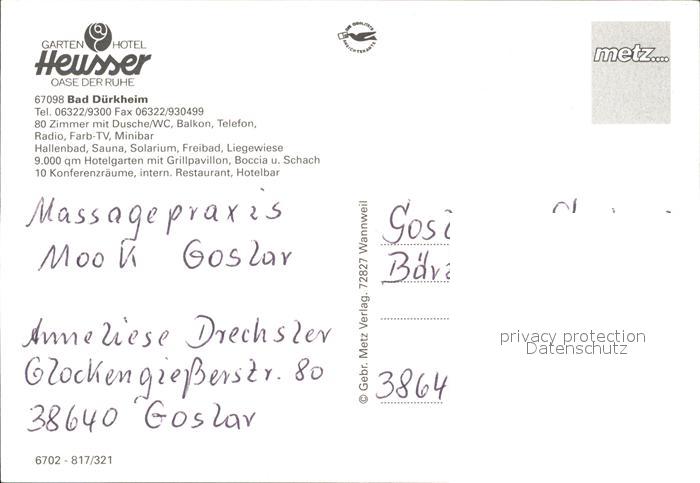 GARTEN HOTEL
Heusser
OASE DER RUHE
67098 Bad Dürkheim
Tel. 06322/9300 Fax 06322/930499
80 Zimmer mit Dusche/WC, Balkon, Telefon,
Radio, Farb-TV, Minibar
Hallenbad, Sauna, Solarium, Freibad, Liegewiese
9.000 qm Hotelgarten mit Grillpavillon, Boccia u. Schach
10 Konferenzräume, intern. Restaurant, Hotelbar
Massagepraxis
Goslar
Anneliese Drechsler
Glockengießerstr. 80
38640 Goslar
6702 - 817/321
© Gebr. Metz Verlag, 72827 Wannweil
metz....
3864
privacy protection
Datenschutz